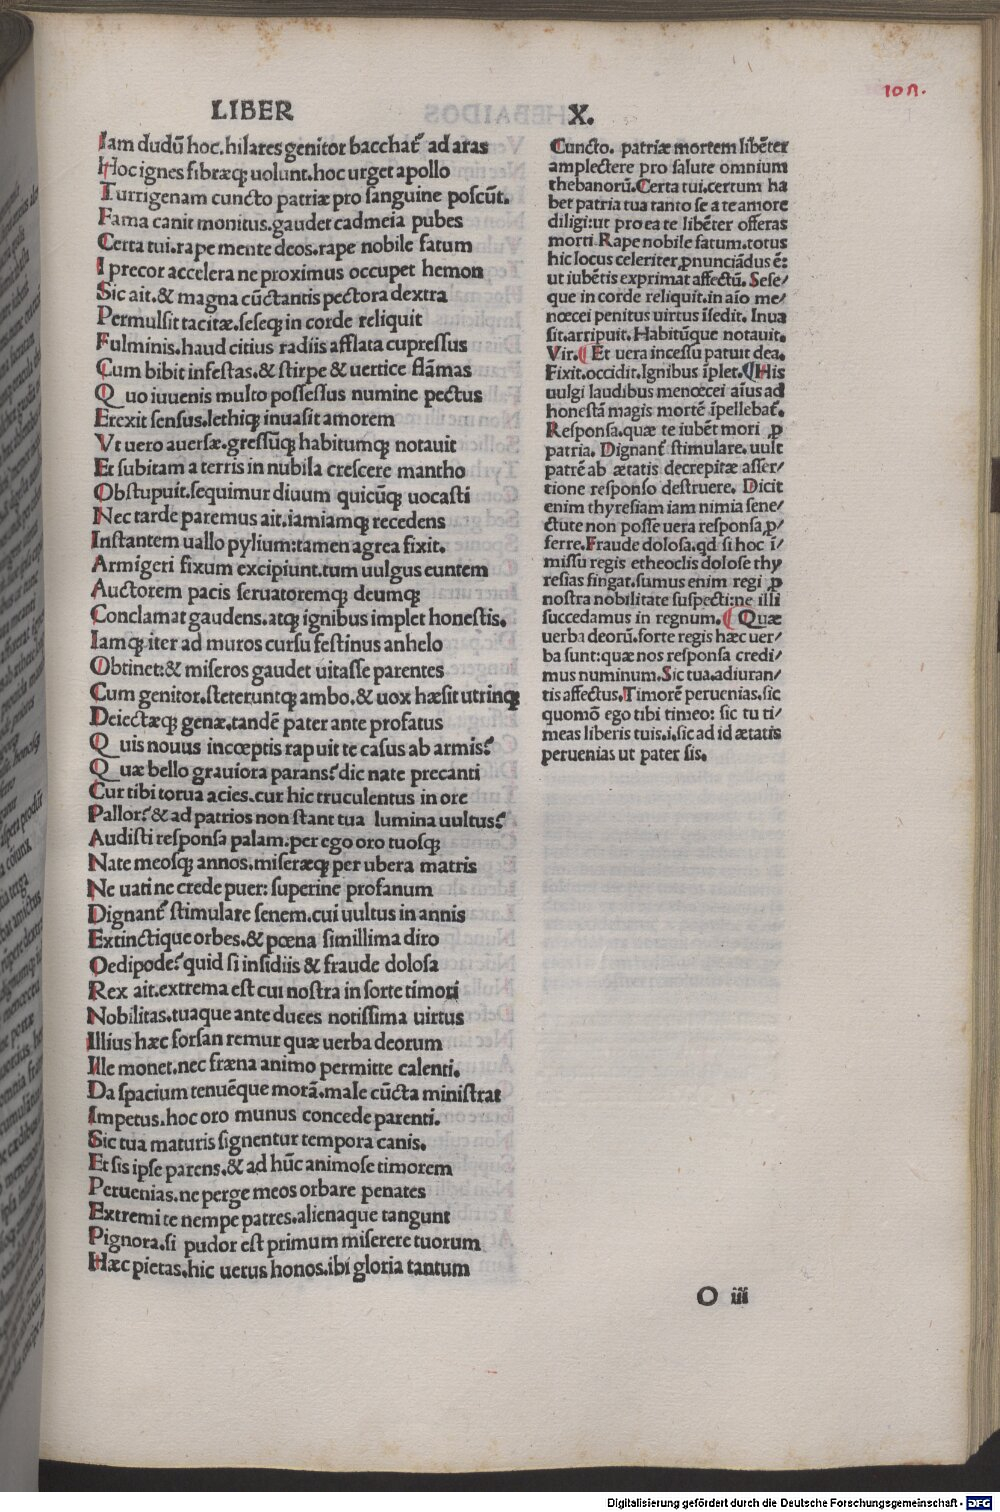 LIBER X.
10n.
Iam dudū hoc.hilares genitor bacchat᷑ ad aras
Hoc ignes fibræq; uolunt.hoc urget apollo
Turrigenam cuncto patriæ pro sanguine poscūt.
Fama canit monitus.gaudet cadmeia pubes
Certa tui.rape mente deos.rape nobile fatum
I precor accelera ne proximus occupet hemon
Sic ait.& magna cūctantis pectora dextra
Permulsit tacitæ.seseq; in corde reliquit
Fulminis.haud citius radiis afflata cupressus
Cum bibit infestas.& stirpe & uertice flāmas
Quo iuuenis multo possessus numine pectus
Erexit sensus.lethiq; inuasit amorem
Vt uero auersæ.gressūq; habitumq; notauit
Et subitam a terris in nubila crescere mantho
Obstupuit.sequimur diuum quicūq; uocasti
Nec tarde paremus ait.iamiamq; recedens
Instantem uallo pylium:tamen agrea fixit.
Armigeri fixum excipiunt.tum uulgus euntem
Auctorem pacis seruatoremq; deumq;
Conclamat gaudens.atq; ignibus implet honestis.
Iamq; iter ad muros cursu festinus anhelo
Obtinet:& miseros gaudet uitasse parentes
Cum genitor.steteruntq; ambo.& uox hæsit utrinq;
Deiectæq; genæ.tandē pater ante profatus
Quis nouus incœptis rapuit te casus ab armis?
Quæ bello grauiora parans? dic nate precanti
Cur tibi torua acies.cur hic truculentus in ore
Pallor? & ad patrios non stant tua lumina uultus?
Audisti responsa palam.per ego oro tuosq;
Nate meosq; annos.miseræq; per ubera matris
Ne uati ne crede puer: superine profanum
Dignant᷑ stimulare senem.cui uultus in annis
Extinctique orbes.& pœna simillima diro
Oedipode? quid si insidiis & fraude dolosa
Rex ait.extrema est cui nostra in sorte timori
Nobilitas.tuaque ante duces notissima uirtus
Illius hæc forsan remur quæ uerba deorum
Ille monet.nec fræna animo permitte calenti.
Da spacium tenuēque morā.male cūcta ministrat
Impetus.hoc oro munus concede parenti.
Sic tua maturis signentur tempora canis.
Et sis ipse parens.& ad hūc animose timorem
Peruenias.ne perge meos orbare penates
Extremi te nempe patres.alienaque tangunt
Pignora.si pudor est primum miserere tuorum
Hæc pietas.hic uetus honos.ibi gloria tantum
Cuncto. patriæ mortem libēter
amplectere pro salute omnium
thebanorū.Certa tui.certum ha
bet patria tua tanto se a te amore
diligi:ut pro ea te libēter offeras
morti Rape nobile fatum.totus
hic locus celeriter ꝓnunciādus ē:
ut iubētis exprimat affectū. Sese/
que in corde reliquit.in aīo me/
nœcei penitus uirtus īsedit. Inua
sit.arripuit. Habitūque notauit.
Vir. Et uera incessu patuit dea.
Fixit.occidit.Ignibus īplet. His
uulgi laudibus menœcei aīus ad
honestā magis mortē īpellebat᷑.
Responsa.quæ te iubēt mori ꝓ
patria. Dignant᷑ stimulare. uult
patrē ab ætatis decrepitæ asser/
tione responso destruere. Dicit
enim thyresiam iam nimia sene/
ctute non posse uera responsa ꝓ/
ferre.Fraude dolosa.qd si hoc ī/
missu regis etheoclis dolose thy
resias fingat.sumus enim regi ꝓ
nostra nobilitate suspecti:ne illi
succedamus in regnum. Quæ
uerba deorū.forte regis hæc uer/
ba sunt:quæ nos responsa credi/
mus numinum.Sic tua.adiuran/
tis affectus.Timorē peruenias.sic
quomō ego tibi timeo: sic tu ti/
meas liberis tuis.i.sic ad id ætatis
peruenias ut pater sis.
O iii
Digitalisierung gefördert durch die Deutsche Forschungsgemeinschaft - DFG